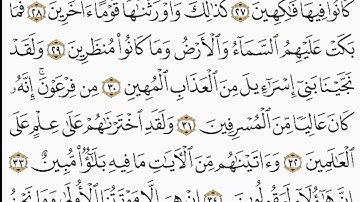 كَانُوا۟ فِيهَا فَٰكِهِينَ ٢٧ كَذَٰلِكَ وَأَوْرَثْنَٰهَا قَوْمًا ءَاخَرِينَ ٢٨ فَمَا
بَكَتْ عَلَيْهِمُ ٱلسَّمَآءُ وَٱلْأَرْضُ وَمَا كَانُوا۟ مُنظَرِينَ ٢٩ وَلَقَدْ
نَجَّيْنَا بَنِىٓ إِسْرَٰٓءِيلَ مِنَ ٱلْعَذَابِ ٱلْمُهِينِ ٣٠ مِن فِرْعَوْنَ ۚ إِنَّهُۥ
كَانَ عَالِيًا مِّنَ ٱلْمُسْرِفِينَ ٣١ وَلَقَدِ ٱخْتَرْنَٰهُمْ عَلَىٰ عِلْمٍ عَلَى
ٱلْعَٰلَمِينَ ٣٢ وَءَاتَيْنَٰهُم مِّنَ ٱلْءَايَٰتِ مَا فِيهِ بَلَٰٓؤٌا۟ مُّبِينٌ ٣٣
إِنَّ هَٰٓؤُلَآءِ لَيَقُولُونَ ٣٤ إِنْ هِىَ إِلَّا مَوْتَتُنَا ٱلْأُولَىٰ وَمَا نَحْنُ